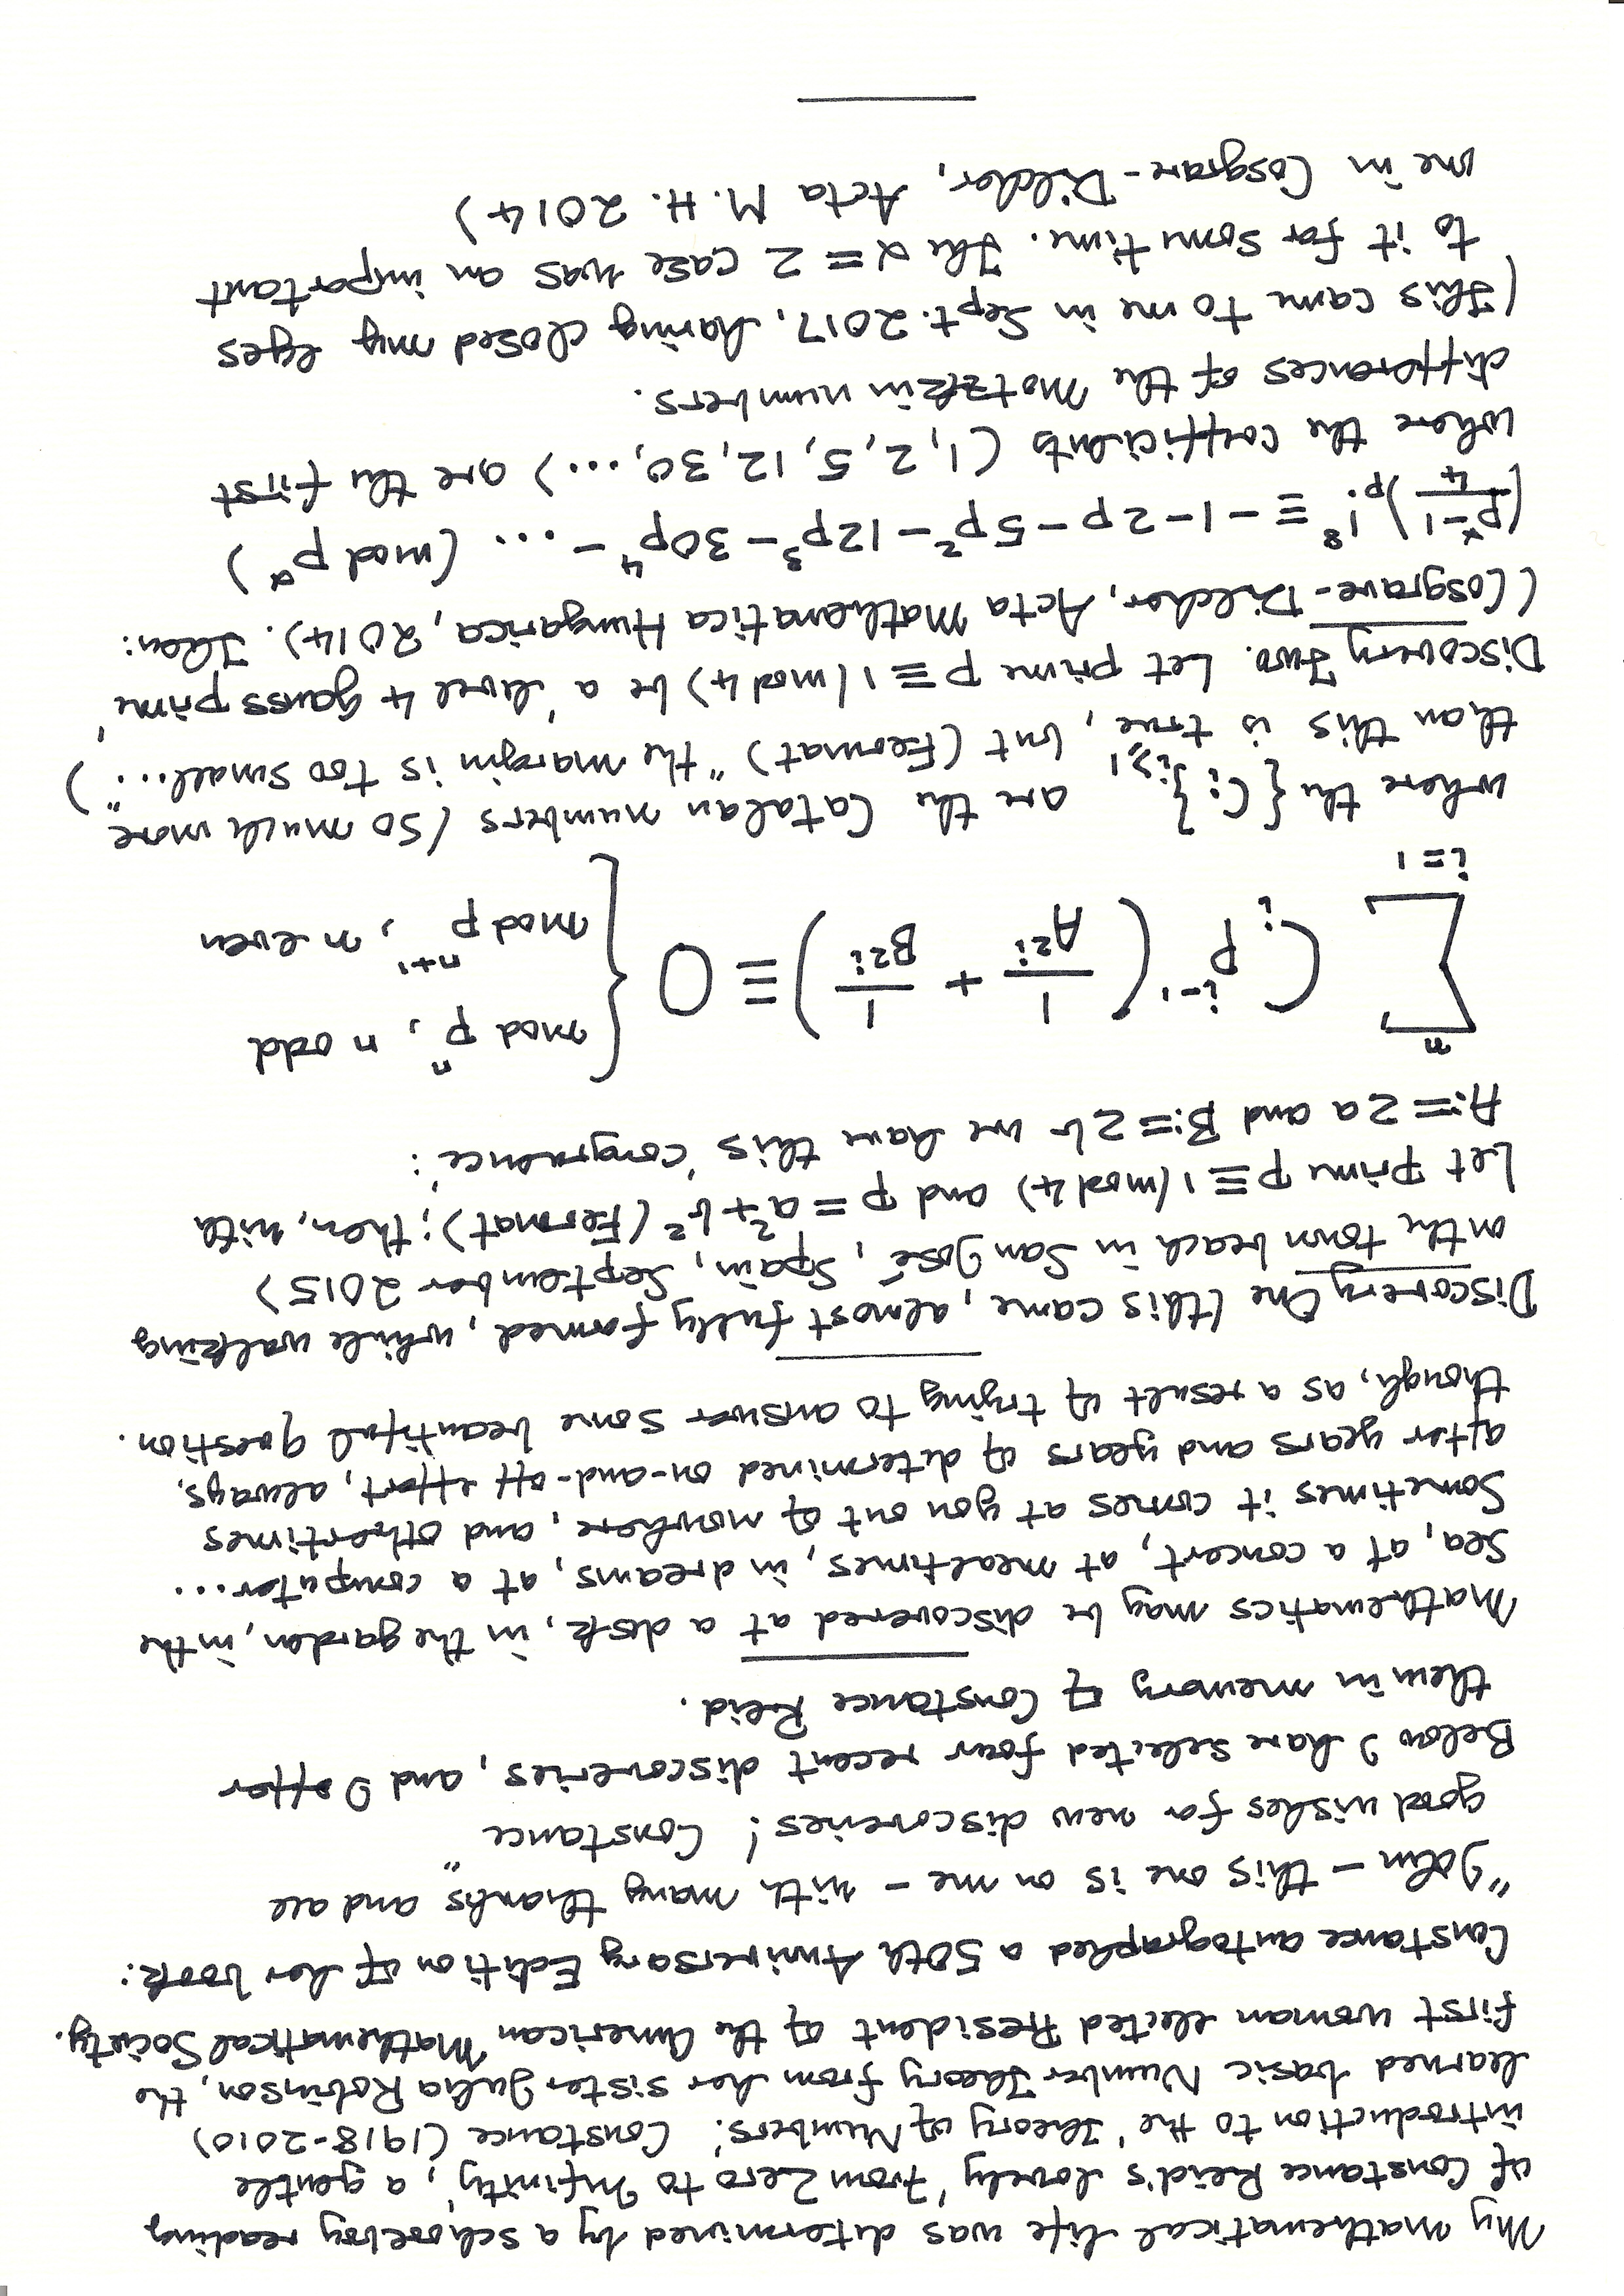 My mathematical life was determined by a schoolboy reading
of Constance Reid's lovely 'From Zero to Infinity', a gentle
introduction to the 'Theory of Numbers.' Constance (1918-2010)
learned basic Number Theory from her sister Julia Robinson, the
first woman elected President of the American Mathematical Society.
Constance autographed a 50th Anniversary Edition of her book:
"John – this one is on me – with many thanks and all
good wishes for new discoveries! Constance"
Below I have selected four recent discoveries, and I offer
them in memory of Constance Reid.
Mathematics may be discovered at a desk, in the garden, in the
sea, at a concert, at mealtimes, in dreams, at a computer...
Sometimes it comes at you out of nowhere, and othertimes
after years and years of determined on-and-off effort, always,
though, as a result of trying to answer some beautiful question.
Discovery One (this came, almost fully formed, while walking
on the town beach in San José, Spain, September 2015)
Let prime p ≡ 1 (mod 4) and p = a² + b² (Fermat); then, with
A := 2a and B := 2b we have this 'congruence':
∑_{i=1}^{n} C_i p^{i-1} (1/A^{2i} + 1/B^{2i}) ≡ 0 { mod p^n, n odd
mod p^{n+1}, n even
where the {C_i}_{i≥1} are the Catalan numbers (so much more
than this is true, but (Fermat) "the margin is too small...")
Discovery Two. Let prime p ≡ 1 (mod 4) be a 'level 4 Gauss prime'
(Cosgrave-Dilcher, Acta Mathematica Hungarica, 2014). Then:
((p^α-1)/4)_p!^8 ≡ -1-2p-5p²-12p³-30p⁴-... (mod p^α)
where the coefficients (1, 2, 5, 12, 30, ...) are the first
differences of the Motzkin numbers.
(This came to me in Sept. 2017, having closed my eyes
to it for some time. The α = 2 case was an important
one in Cosgrave-Dilcher, Acta M. H. 2014)